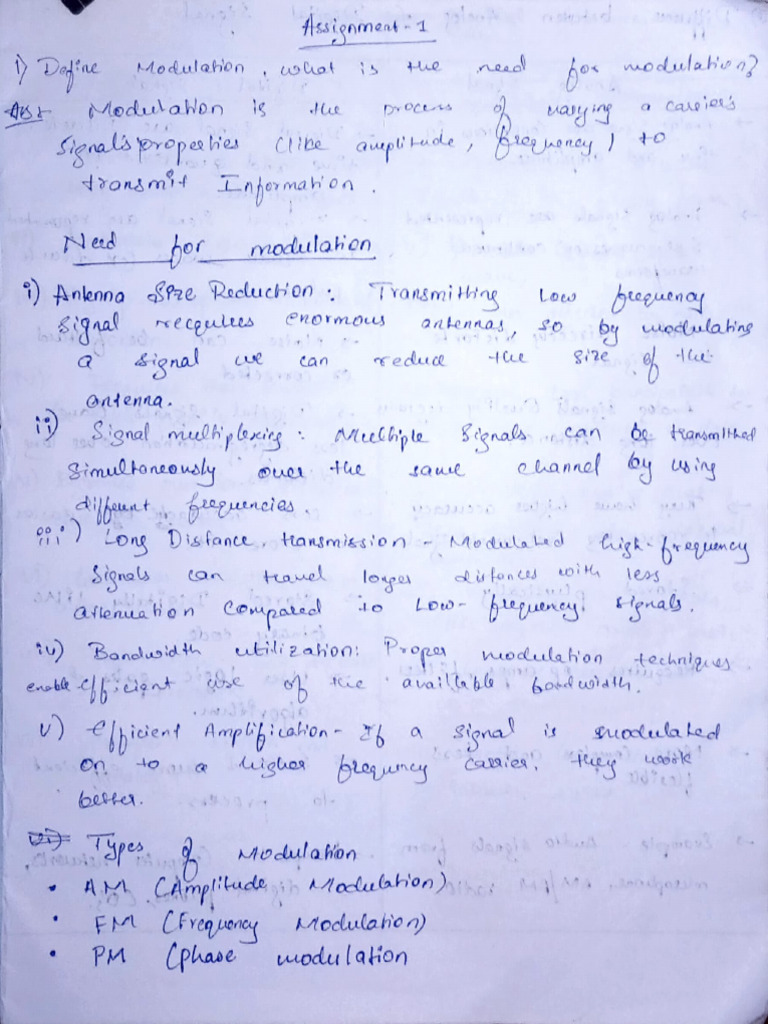 Assignment-1
1) Define Modulation, what is the need for modulation?
Ans:- Modulation is the process of varying a carrier's
signal's properties (like amplitude, frequency) to
transmit Information.
Need for modulation
i) Antenna Size Reduction: Transmitting Low frequency
signal requires enormous antennas, so by modulating
a signal we can reduce the size of the
antenna.
ii) Signal multiplexing: Multiple Signals can be transmitted
simultaneously over the same channel by using
different frequencies.
iii) Long Distance transmission - Modulated high-frequency
signals can travel longer distances with less
attenuation compared to Low-frequency signals.
iv) Bandwidth utilization: Proper modulation techniques
enable efficient use of the available bandwidth.
v) Efficient Amplification - If a signal is modulated
on to a higher frequency carrier, they work
better.
Types of Modulation
• AM (Amplitude Modulation)
• FM (Frequency Modulation)
• PM (phase modulation